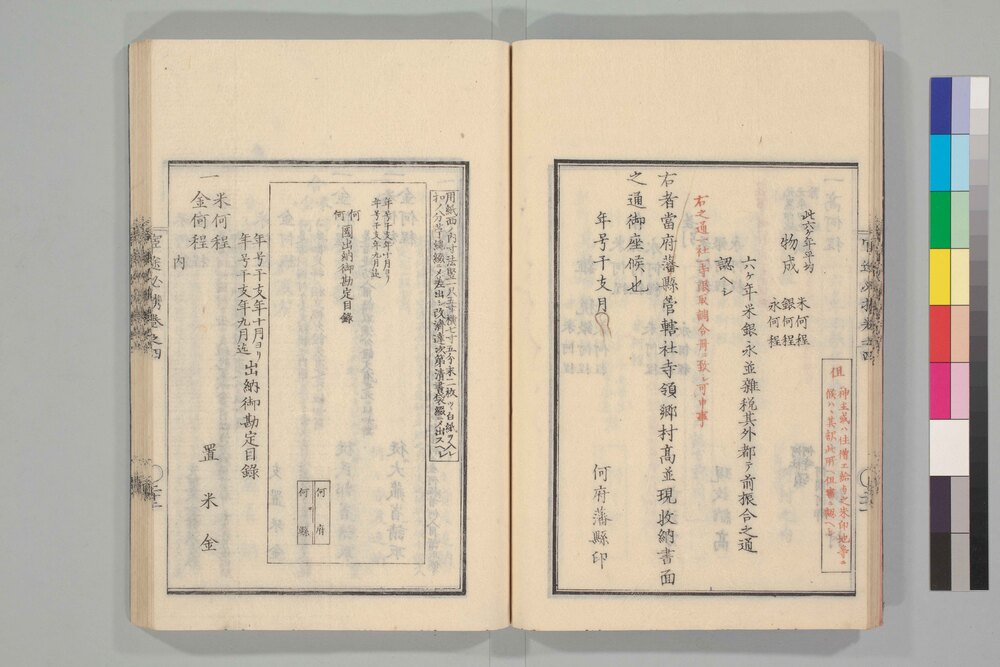 但
神主或ハ住僧エ給与之朱印地等ニ
候ハヽ其訳此所ヘ但書ニ認ヘシ
此六ケ年平均
物成
米何程
銀何程
永何程
六ケ年米銀永並雜税其外都テ前振合之通
認ヘシ
右之通社寺限取調合冊ニ致シ可申事
右者當府藩縣管轄社寺領鄉村高並現收納書面
之通御座候也
年号干支月
何府藩縣印
用紙西ノ内寸法竪一尺五寸横七寸五分末二枚ツヽ白紙ヲ入レ
扣ノ分下ケ綴ニメ差出シ改濟達次第清書袋綴ニメ出スヘシ
年号干支年十月ヨリ
年号干支年九月迄
何
何
國出納御勘定目錄
何府
何縣
年号干支年十月ヨリ
年号干支年九月迄
出納御勘定目錄
一
米何程
金何程
内
置米金